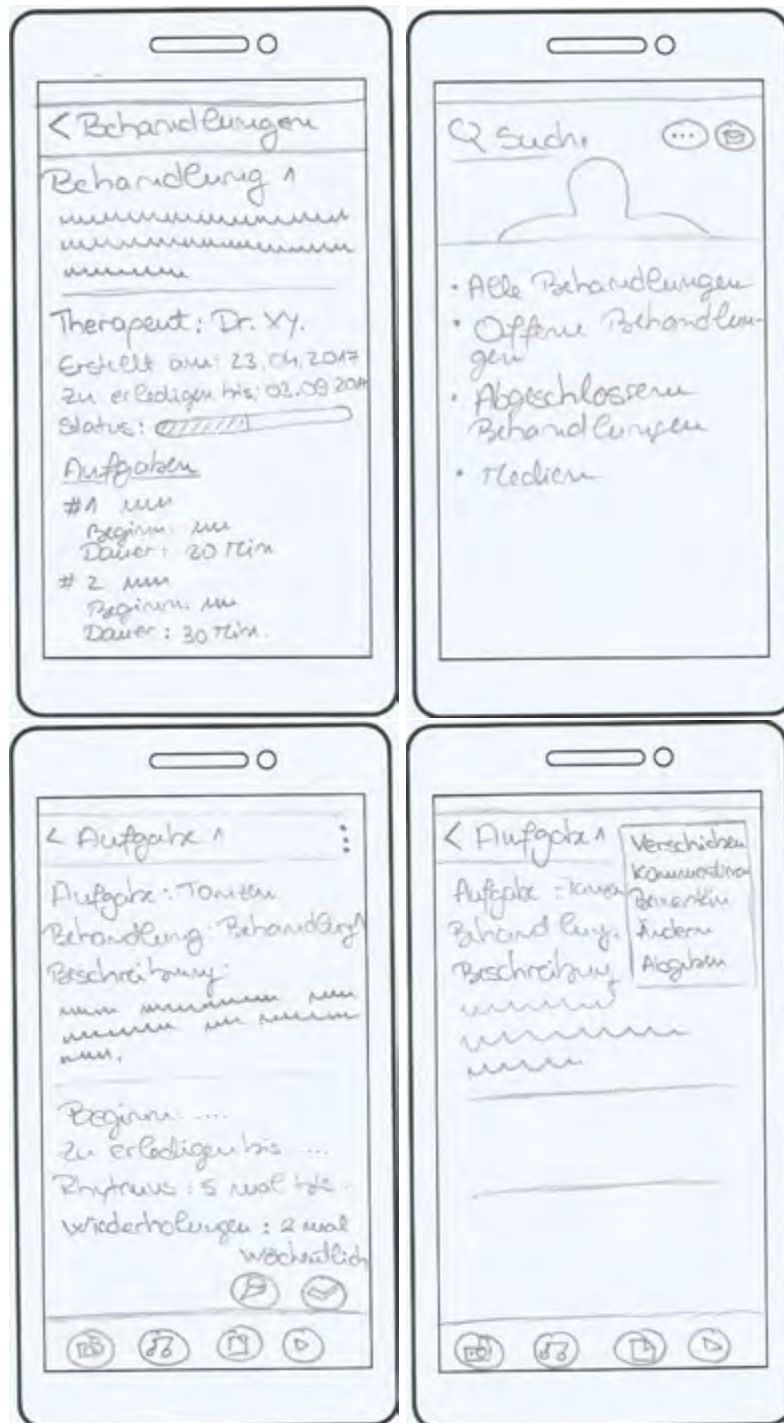 < Behandlungen
Behandlung 1
Therapeut: Dr. XY.
Erstellt am: 23.04.2017
Zu erledigen bis: 02.09.201
Status:
Aufgaben
#1
Beginn:
Dauer: 30 Min
#2
Beginn:
Dauer: 30 Min.
Suche
• Alle Behandlungen
• Offene Behandlun-
gen
• Abgeschlossene
Behandlungen
• Medien
< Aufgabe 1
Aufgabe:
Behandlung: Behandlung 1
Beschreibung:
Beginn: ...
Zu erledigen bis ...
Rhytmus: 5 mal
Wiederholungen: 2 mal
wöchentlich
< Aufgabe 1
Aufgabe:
Behandlung.
Beschreibung
Verschieben
Bemerken
Ändern
Abgeben